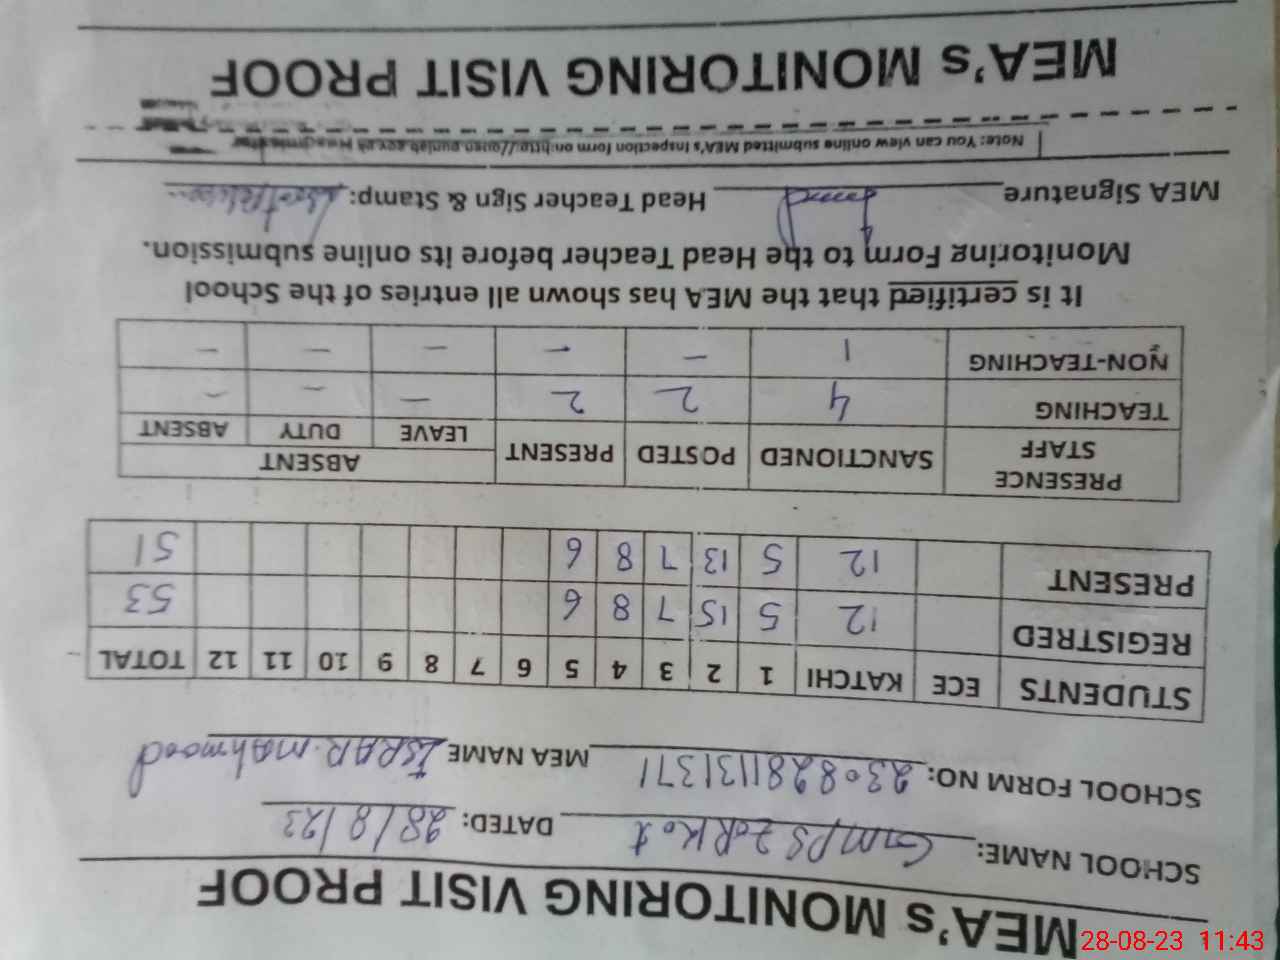 MEA's MONITORING VISIT PROOF
SCHOOL NAME: GMPS ZORKot DATED: 28/8/23
SCHOOL FORM NO: 2308281131371 MEA NAME ISRAR mahmood
STUDENTS ECE KATCHI 1 2 3 4 5 6 7 8 9 10 11 12 TOTAL
REGISTRED 12 5 15 7 8 6 53
PRESENT 12 5 13 7 8 6 51
PRESENCE STAFF SANCTIONED POSTED PRESENT ABSENT
LEAVE DUTY ABSENT
TEACHING 4 2 2 — — —
NON-TEACHING 1 — — — — —
It is certified that the MEA has shown all entries of the School
Monitoring Form to the Head Teacher before its online submission.
MEA Signature Head Teacher Sign & Stamp:
Note: You can view online submitted MEA's Inspection form on http://open.punjab.gov.pk
MEA's MONITORING VISIT PROOF
28-08-23 11:43